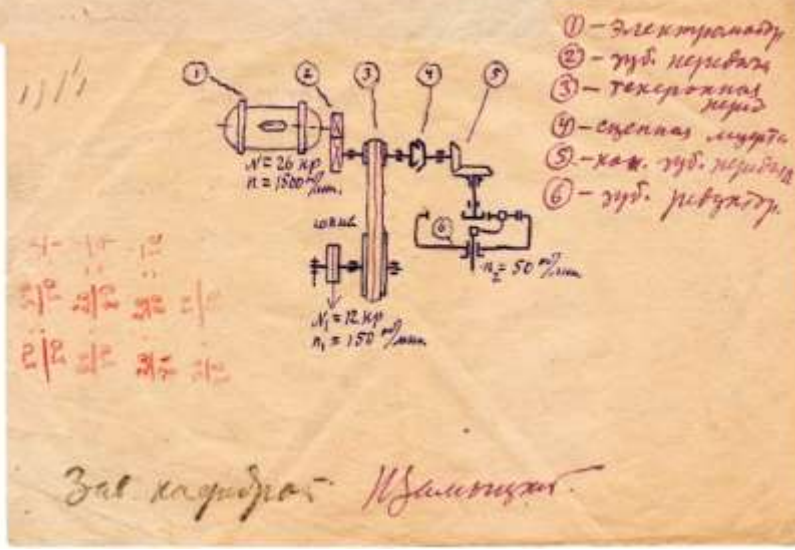 ① – Электромотор
② – зуб. передача
③ – тексропная перед
④ – сцепная муфта
⑤ – кон. зуб. передача
⑥ – зуб. редуктор.
① ② ③ ④ ⑤
N = 26 кр
n = 1500 об/мин.
шкив
⑥
n₂ = 50 об/мин.
N₁ = 12 кр
n₁ = 150 об/мин.
Зав кафедрой